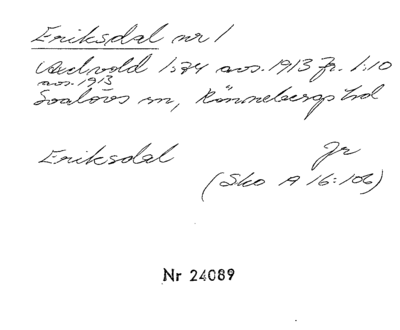 Eriksdal nr 1
Axelvold 1:74 avs. 1913 fr. 1:10
avs. 1913
Svalövs sn, Rönnebergs hd
Eriksdal Jr
(Sko A 16:106)
Nr 24089